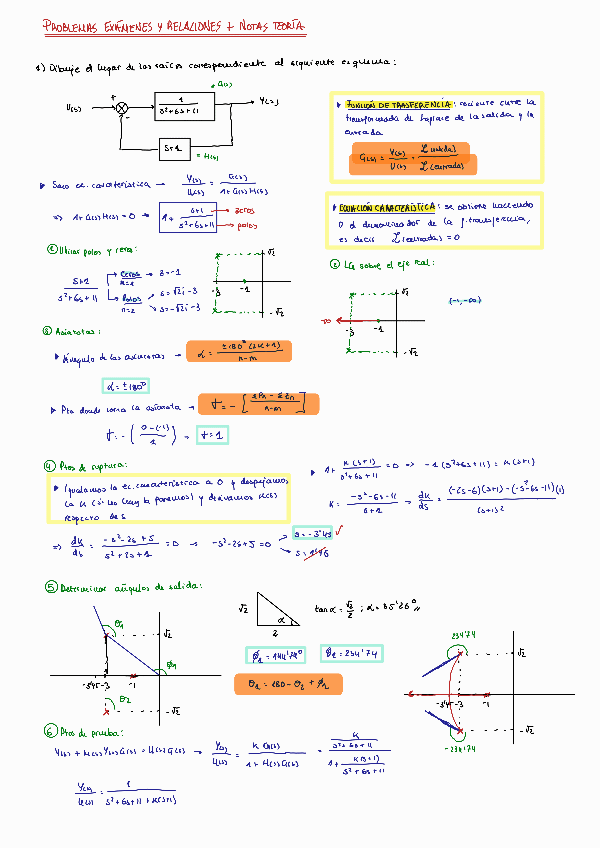 PROBLEMAS EXÁMENES Y RELACIONES + NOTAS TEORÍA
1) Dibuje el lugar de las raíces correspondiente al siguiente esquema:
G(s)
U(s) + - 1 / s²+6s+11 Y(s)
s+1 = H(s)
▸ FUNCIÓN DE TRASFERENCIA: cociente entre la
transformada de Laplace de la salida y la
entrada
G(s) = Y(s)/U(s) = ℒ(salida)/ℒ(entrada)
▸ Saco ec. característica → Y(s)/U(s) = G(s)/1+G(s)H(s)
⇒ 1+G(s)H(s)=0 → 1+ s+1 / s²+6s+11 → zeros → polos
▸ ECUACIÓN CARACTERÍSTICA: se obtiene haciendo
0 el denominador de la f. trasferencia,
es decir ℒ(entradas)=0
① Ubicar polos y ceros:
s+1 / s²+6s+11
ceros → s=-1
m=1
Polos → s=√2i-3
n=2 → s=-√2i-3
√2
-3 -1
-√2
② LR sobre el eje real:
-∞ -3 -1 √2 -√2
(-1,-∞)
③ Asíntotas:
▸ Ángulo de las asíntotas → α = ±180°(2k+1) / n-m
α=±180°
▸ Pto donde corta la asíntota → σ = -[ΣPn-ΣZn / n-m]
σ=-( 0-(-1) / 1 ) → σ=1
④ Ptos de ruptura:
▸ Igualamos la ec. característica a 0 y despejamos
la K (si no la hay la ponemos) y derivamos K(s)
respecto de s
▸ 1+ K(s+1) / s²+6s+11 =0 ⇒ -1(s²+6s+11) = K(s+1)
K= -s²-6s-11 / s+1 → dK/ds = (-2s-6)(s+1)-(-s²-6s-11)(1) / (s+1)²
⇒ dK/ds = -s²-2s+5 / s²+2s+1 =0 → -s²-2s+5=0
s=-3'45 ✓
s=1'45
⑤ Determinar ángulos de salida:
θ1 φ1 θ2
-3'45 -3 -1 √2 -√2
√2 α 2
tanα=√2/2 ; α=35'26°
φ1=144'74° φ2=234'74
θ1=180-θ2+φ1
234'74
√2
-3'45 -3 -1
-√2
-234'74
⑥ Ptos de prueba:
Y(s)+K(s)Y(s)G(s)=U(s)G(s) → Y(s)/U(s) = K G(s) / 1+H(s)G(s) = K / s²+6s+11 / 1+ K(s+1) / s²+6s+11
Y(s)/U(s) = 1 / s²+6s+11+K(s+1)